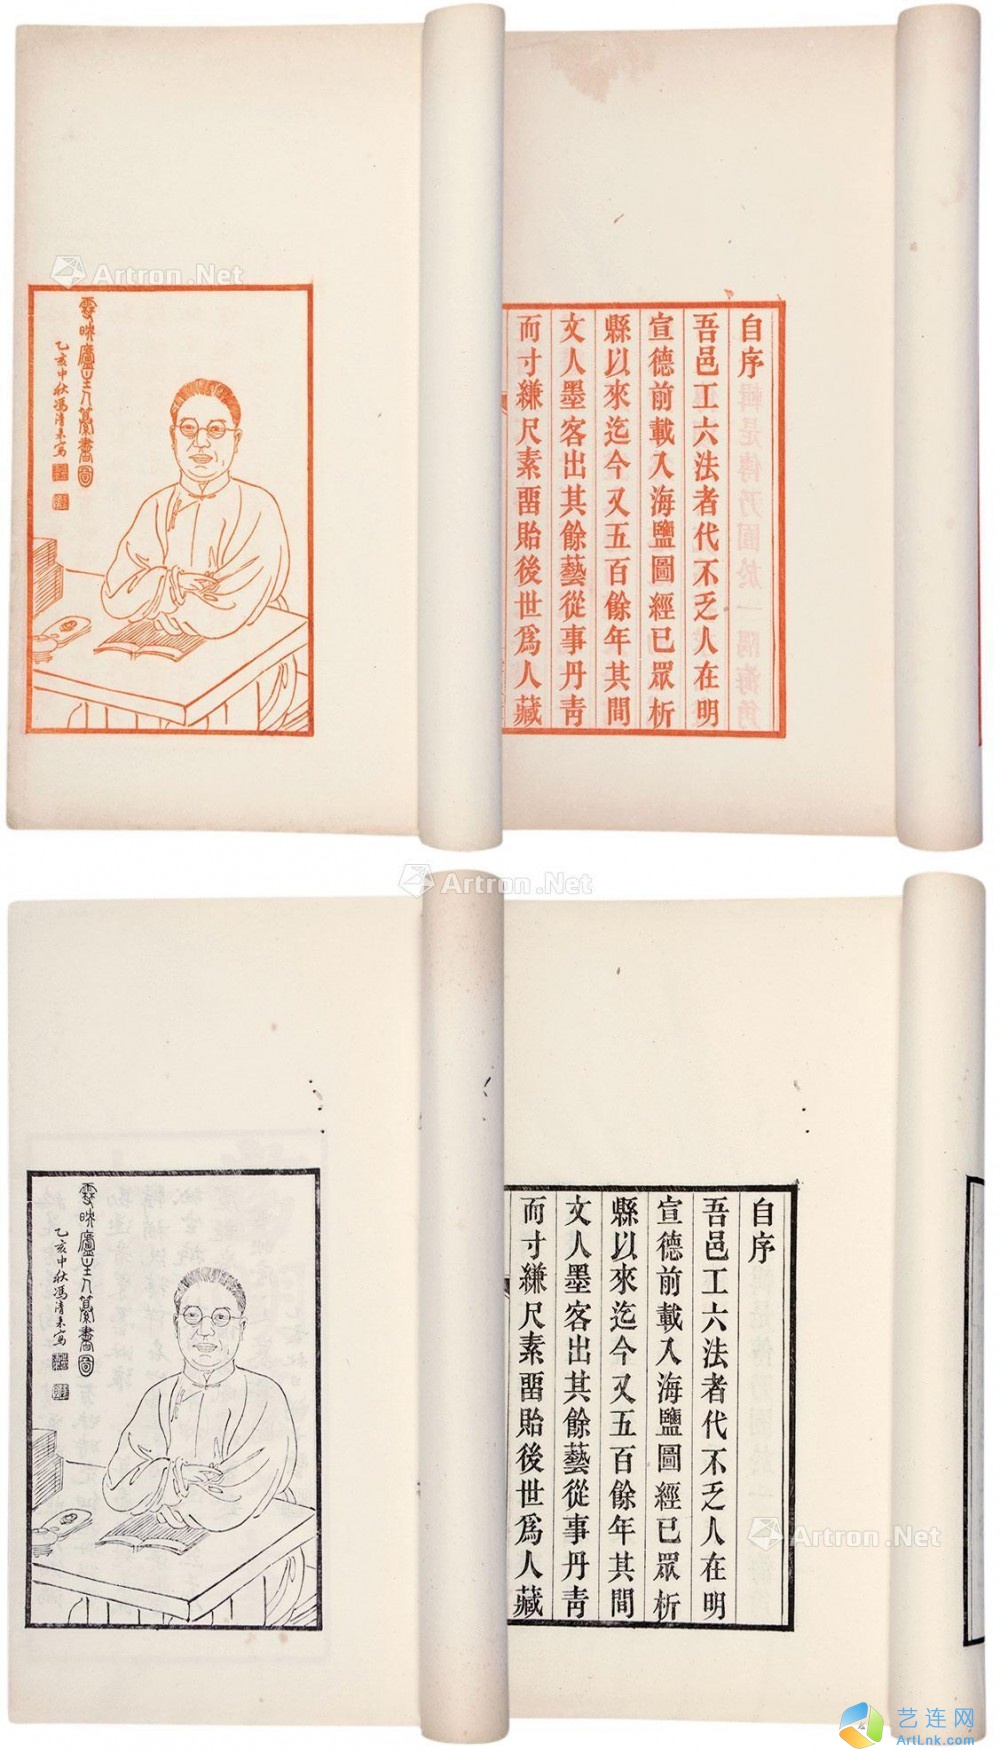 Artron.Net
自序
吾邑工六法者代不乏人在明
宣德前載入海鹽圖經已眾析
縣以來迄今又五百餘年其間
文人墨客出其餘藝從事丹青
而寸縑尺素畱貽後世爲人藏
映廬主人篹書圖
乙亥中秋馮清來寫
Artron.Net
自序
吾邑工六法者代不乏人在明
宣德前載入海鹽圖經已眾析
縣以來迄今又五百餘年其間
文人墨客出其餘藝從事丹青
而寸縑尺素畱貽後世爲人藏
映廬主人篹書圖
乙亥中秋馮清來寫
Artron.Net
艺连网
ArtLnk.com